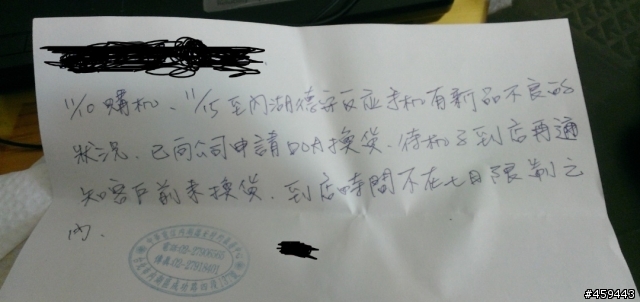 11/10購机、11/15至內湖德安反应手机有新品不良的
狀況、已向公司申請DOA換貨、待机子到店再通
知客戶前来換貨、到店時間不在七日限制之
內.
電話:02-27906666
#459443